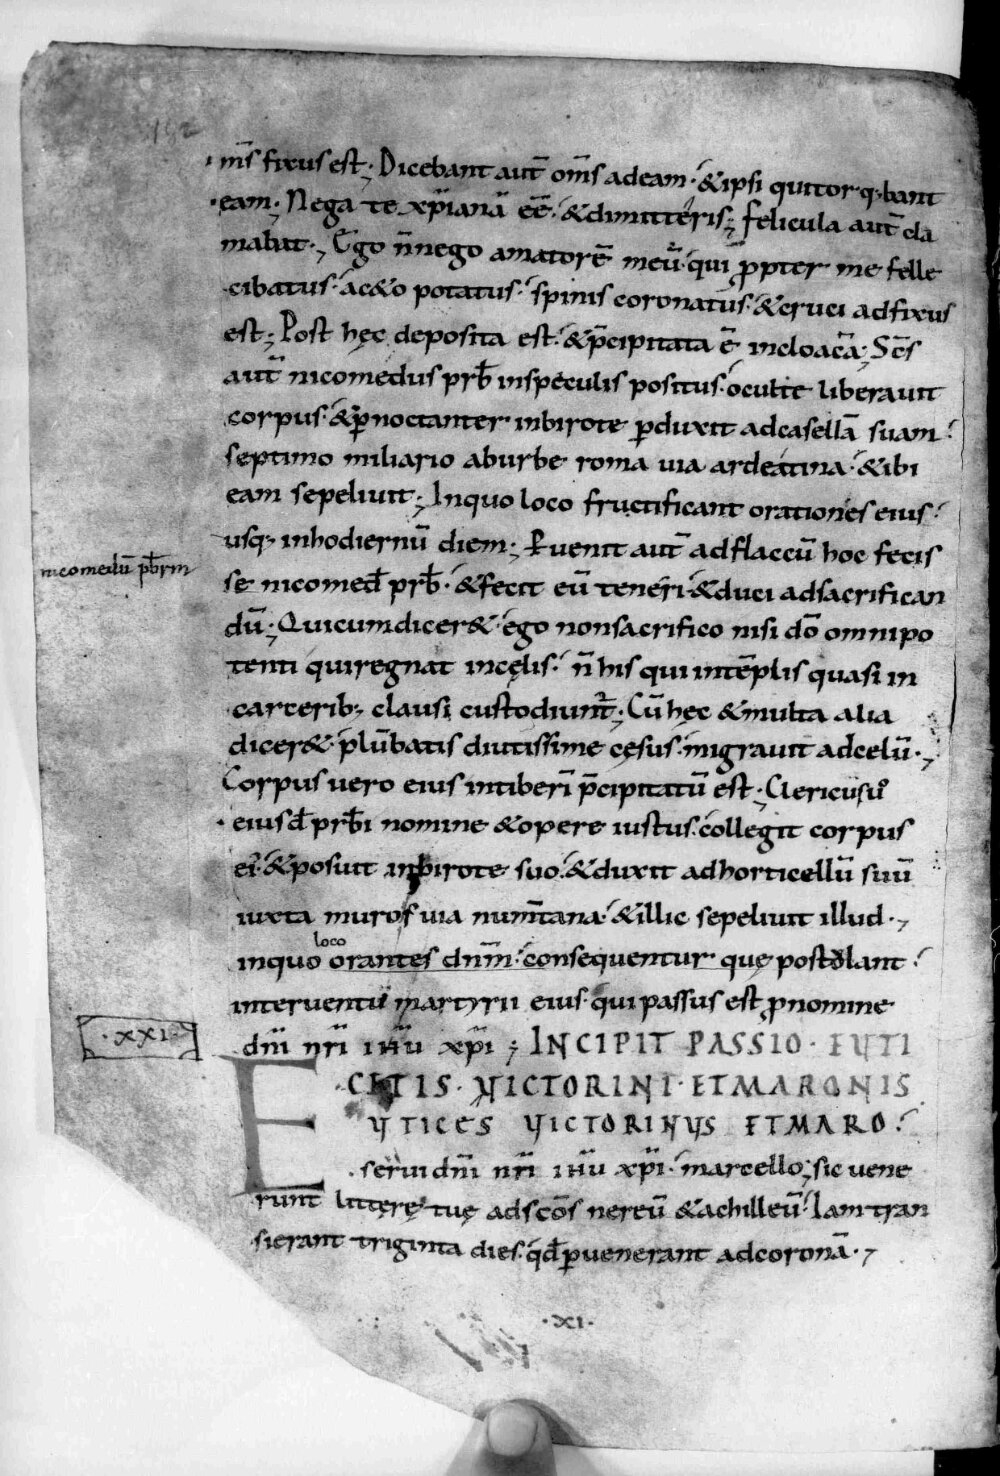 152
m̄s fixus est; Dicebant aut̄ om̄s adeam· &ipsi qui torq;bant
eam· Nega te xp̄ianā eē· &dimitteris; felicula aut̄ cla
mabat·; Ego n̄nego amatorē meū· qui ꝓpter me felle
cibatus· ac&o potatus· spinis coronatus· &cruci adfixus
est; Post hęc deposita est· &p̄cipitata ē incloacā; Sc̄s
aut̄ nicomedus prb̄ inspeculis positus· oculte liberauit
corpus· &ꝑnoctanter inbirote ꝑduxit adcasellā suam·
septimo miliario aburbe roma uia ardeatina· &ibi
eam sepeliuit; Inquo loco fructificant orationes eius·
usq; inhodiernū diem; Puenit aut̄ adflaccū hoc fecis
se nicomed̄ prb̄· &fecit eū teneri· &duci adsacrifican
dū; Quicumdicer&· ego nonsacrifico nisi dō omnipo
tenti quiregnat incęlis· n̄ his qui intēplis quasi in
carcerib; clausi custodiunt̄; Cū hęc &multa alia
dicer& plūbatis diutissime cęsus· migrauit adcelū·;
Corpus uero eius intiberī p̄cipitatū est; Clericus u͛
eiusd̄ prb̄i nomine &opere iustus· collegit corpus
ei· &posuit inbirote suo· &duxit adhorticellū suū
iuxta muros uia numt̄ana· &illic sepeliuit illud·;
loco
inquo orantes dnm̄· consequentur quę postolant·
interuentu martyrii eius· qui passus est ꝓnomine
dnī nr̄i ihū xp̄i; INCIPIT PASSIO· EUTI
CETIS· VICTORINI· ET MARONIS
EUTICES VICTORINUS ET MARO·
serui dnī nr̄i ihū xp̄i· marcello; sic uene
runt litterę tuę adscōs nereū &achilleū· Iam tran
sierant triginta dies· qd̄ ꝑuenerant adcoronā·;
nicomedū pb̄rm
·XXI·
·XI·